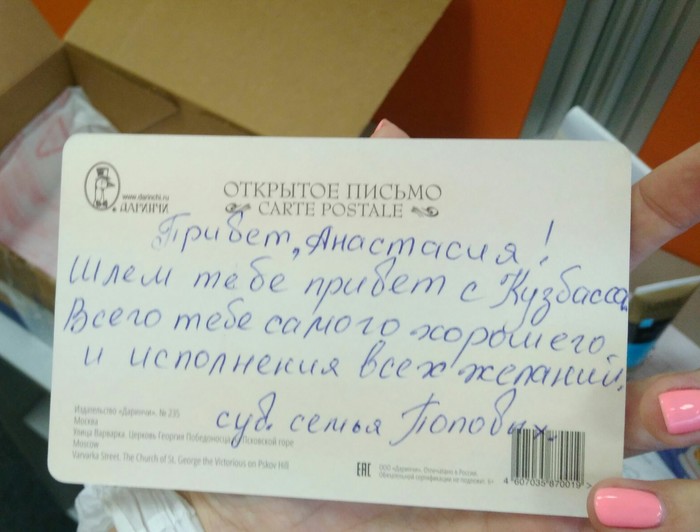 www.darinchi.ru
ДАРИНЧИ
ОТКРЫТОЕ ПИСЬМО
CARTE POSTALE
Привет, Анастасия!
Шлем тебе привет с Кузбасса
Всего тебе самого хорошего
и исполнения всех желаний.
с ув. семья Поповых.
Издательство «Даринчи». № 235
Москва
Улица Варварка. Церковь Георгия Победоносца Псковской горе
Moscow
Varvarka Street. The Church of St. George the Victorious on Pskov Hill
EAC
ООО «Даринчи». Отпечатано в России
Обязательной сертификации не подлежит.
4 607035 870019 >